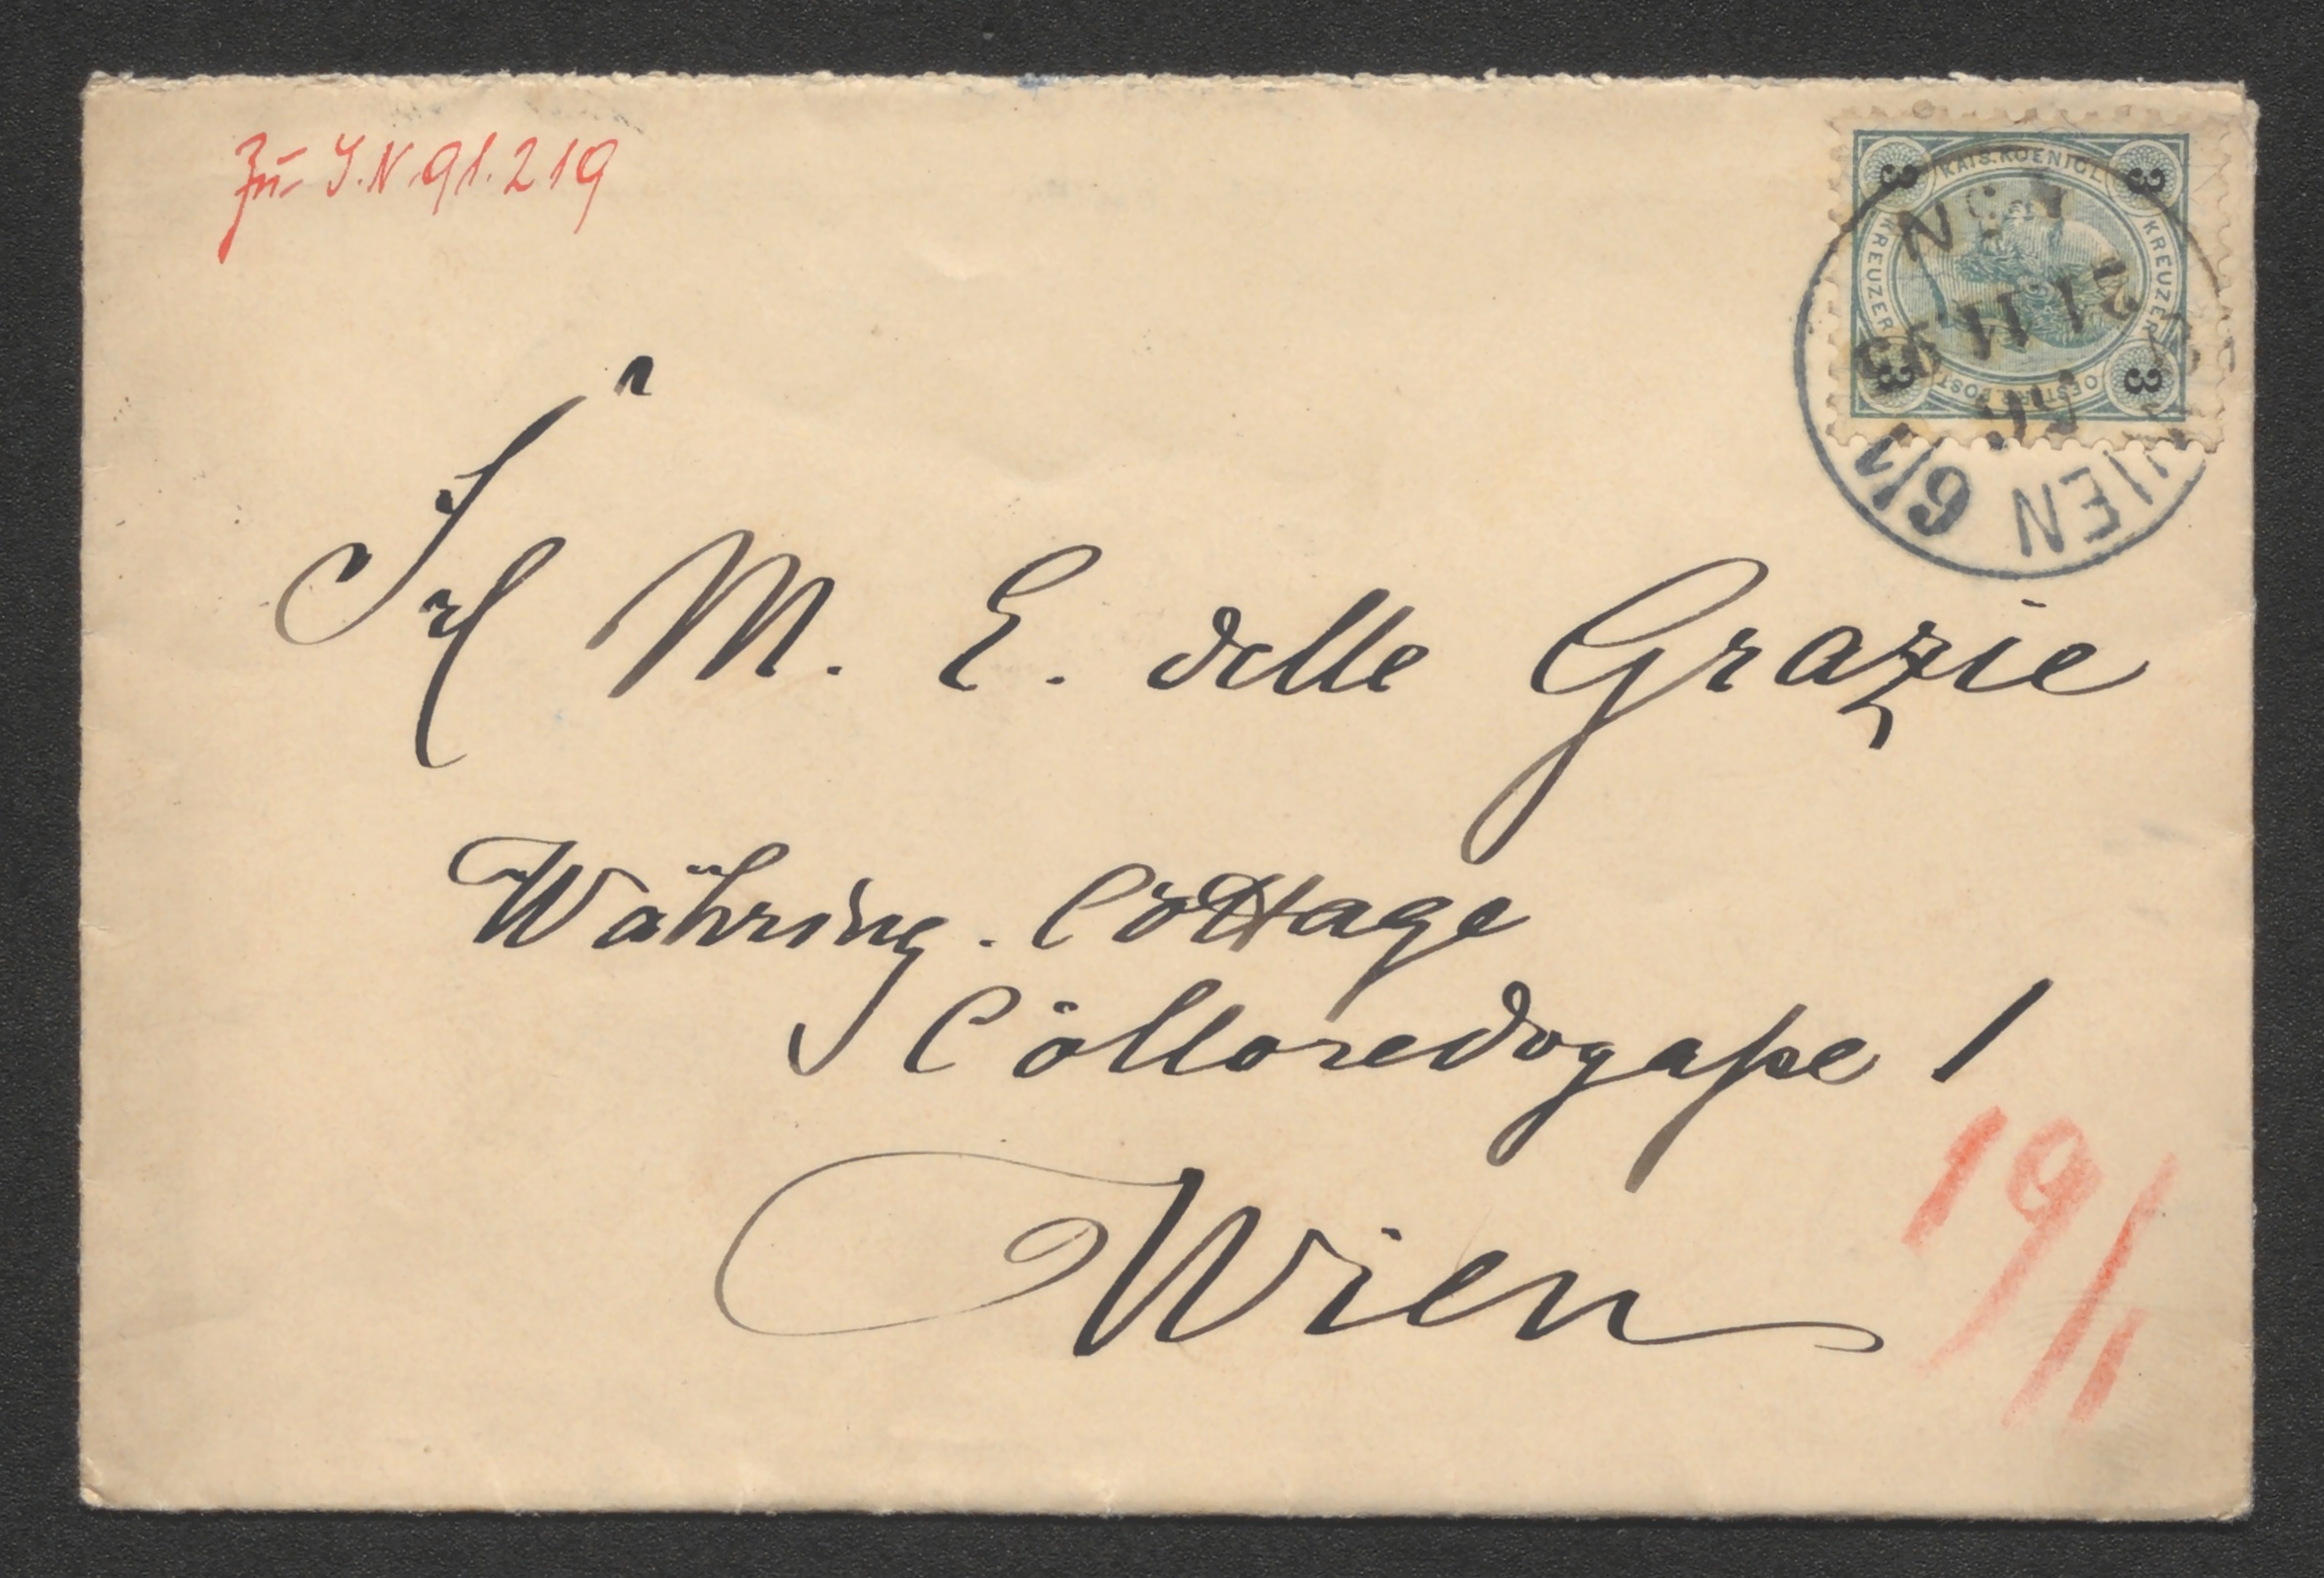 Zu I.N. 91.219
KAIS. KOENIGL.
3 3
KREUZER KREUZER
3 3
21.11.93
WIEN 6/1
Frl M. E. delle Grazie
Währing. Cottage
Colloredogaße 1
Wien
19/11